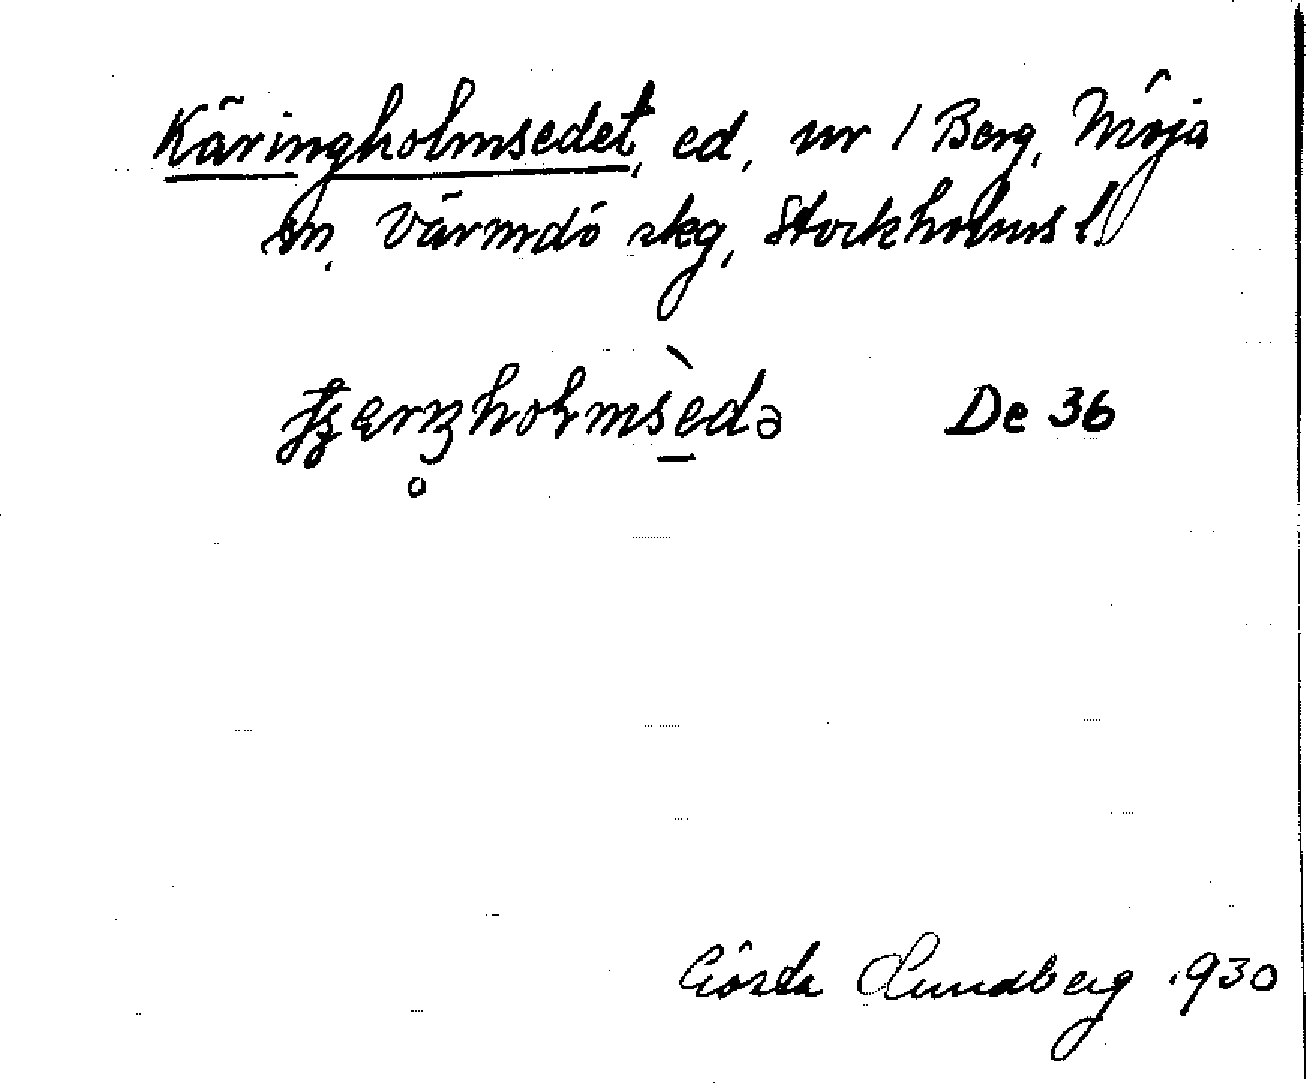 Käringholmsedet, ed, nr 1 Berg, Möja
sn, Värmdö skg, Stockholms l.
De 36
Gösta Lundberg 1930